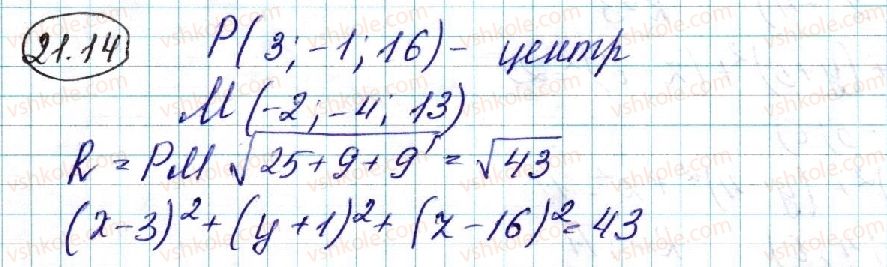 21.14 P(3; -1; 16) - центр
M(-2; -4; 13)
R = PM √25+9+9 = √43
(x-3)²+(y+1)²+(z-16)²=43